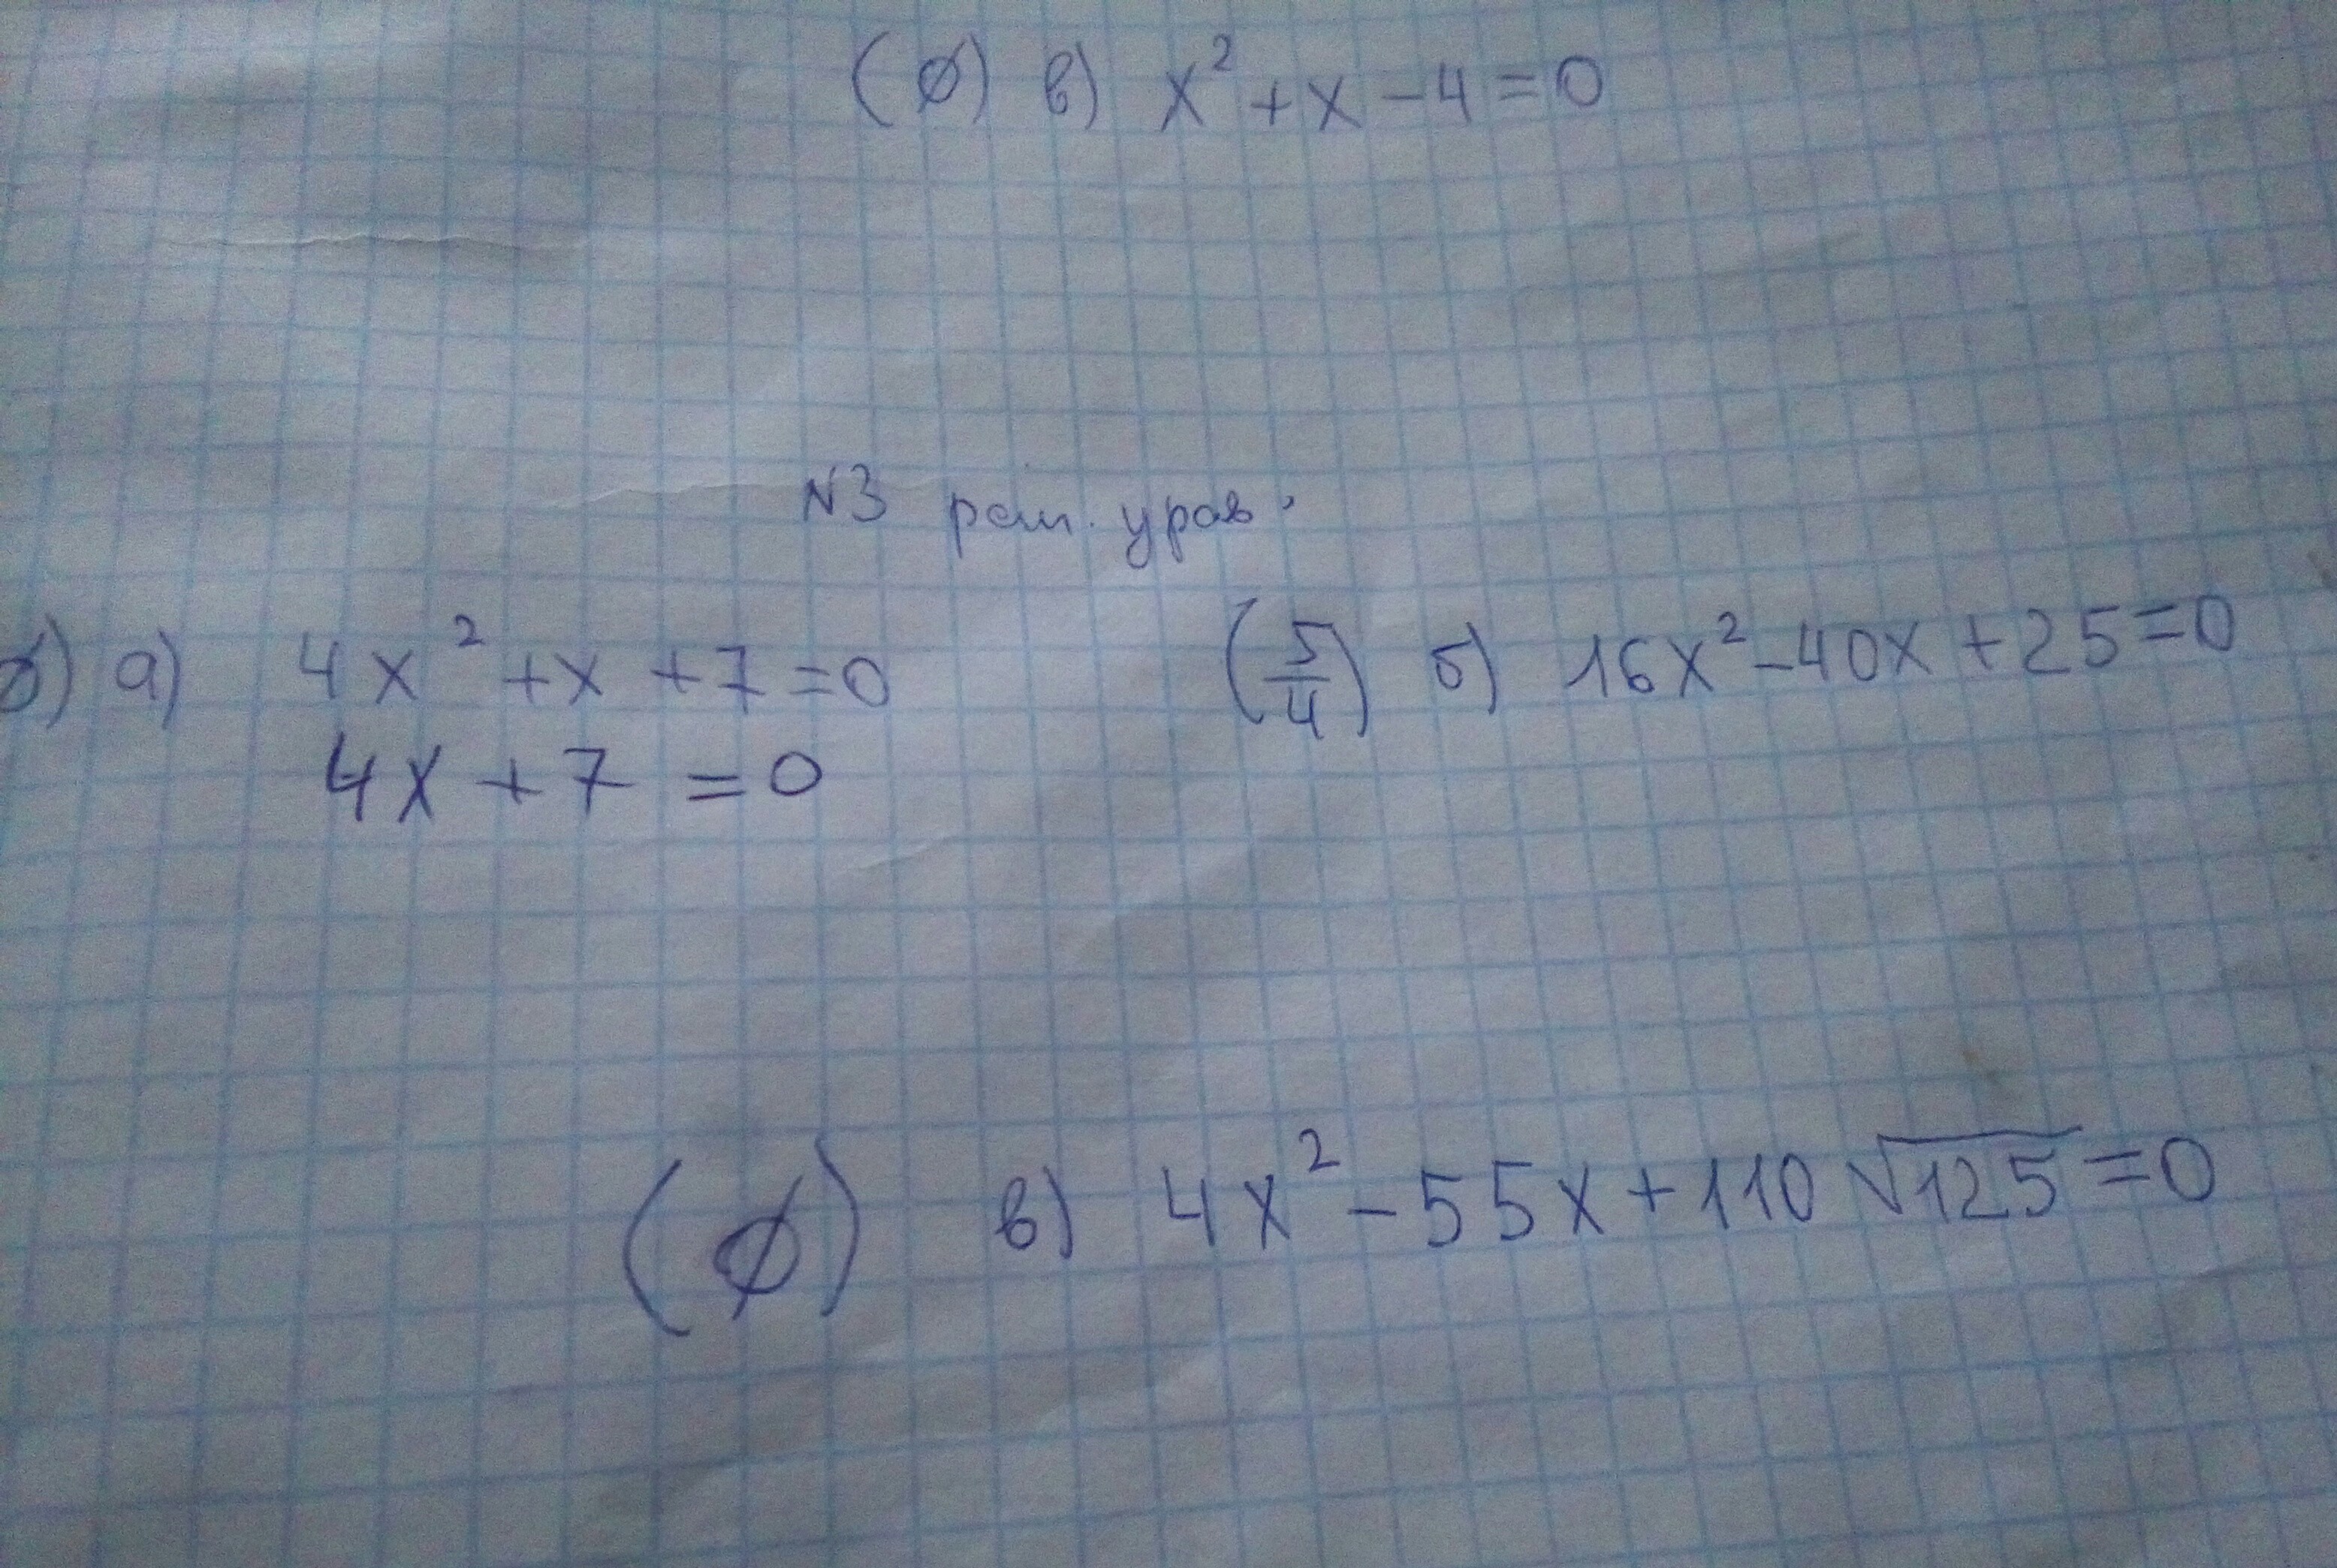 (∅) в) x² + x - 4 = 0
N3 реш. урав.
∅) а) 4x² + x + 7 = 0 (5/4) б) 16x² - 40x + 25 = 0
4x + 7 = 0
(∅) в) 4x² - 55x + 110 √125 = 0